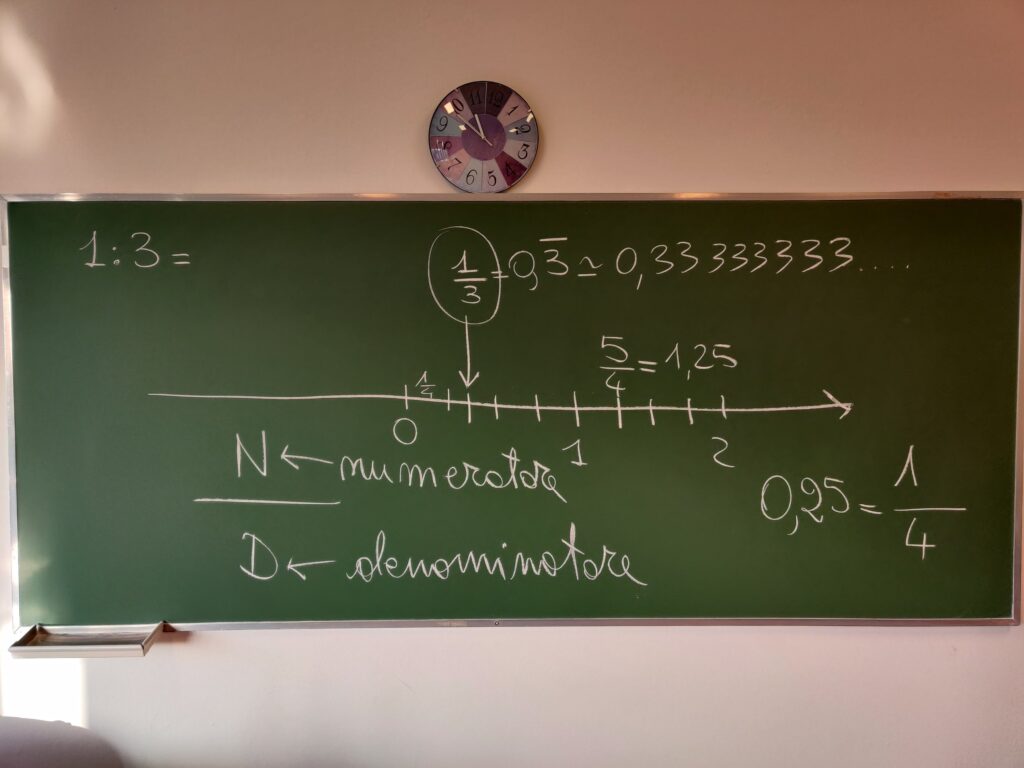 11 12 1 2 3 4 5 6 7 8 9 10
1:3=
1/3=0,3̅≃0,33333333....
5/4=1,25
1/4
0 1 2
N ← numeratore
D ← denominatore
0,25=1/4